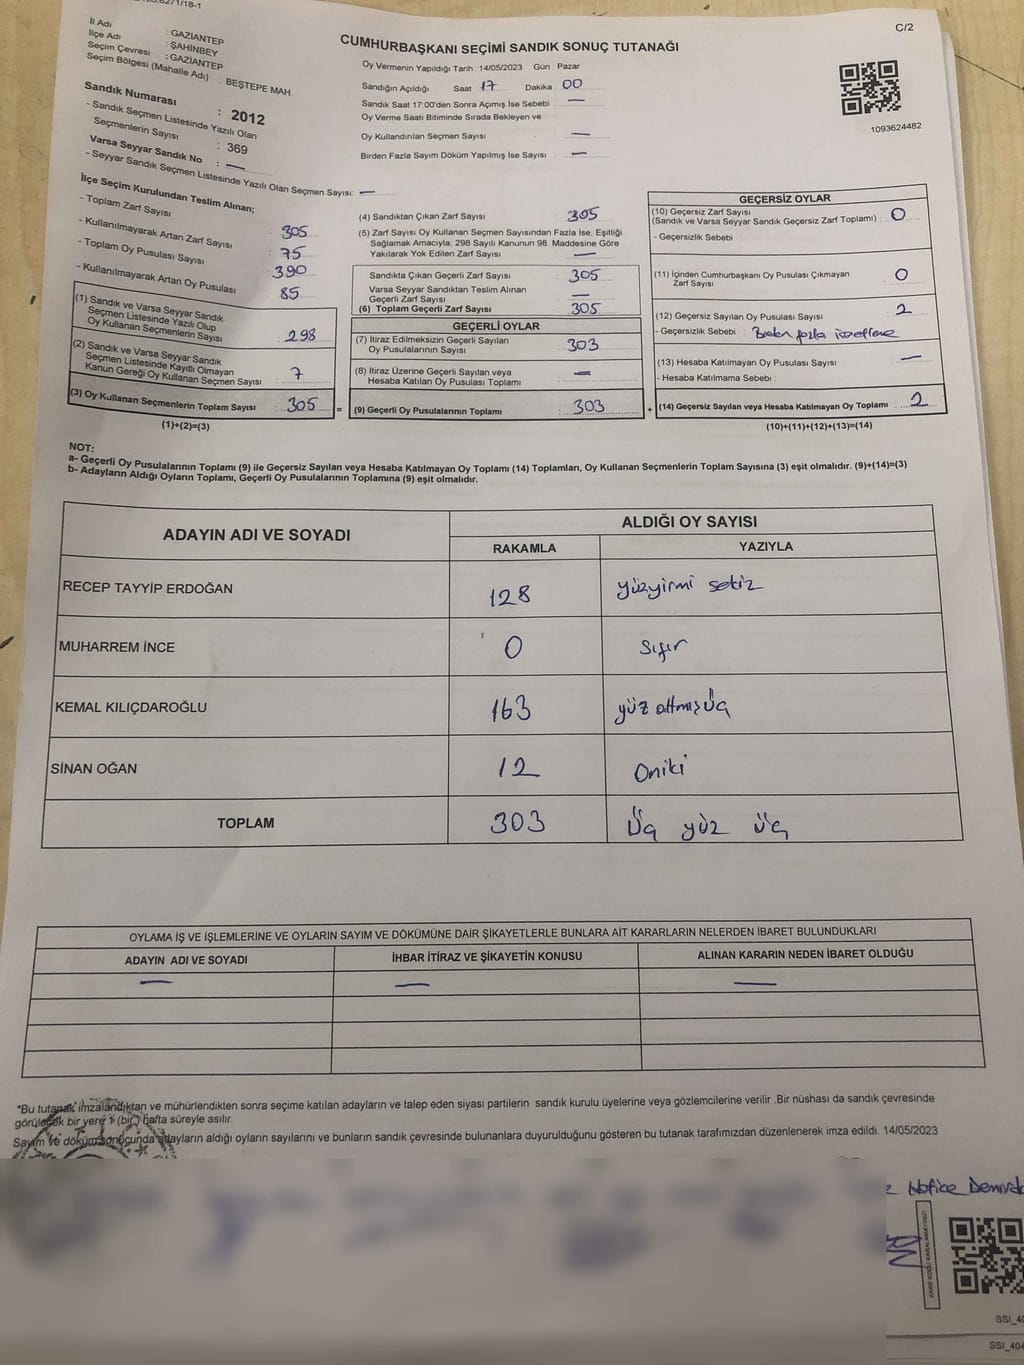 C/2
İl Adı : GAZİANTEP
İlçe Adı : ŞAHİNBEY
Seçim Çevresi : GAZİANTEP
Seçim Bölgesi (Mahalle Adı) : BEŞTEPE MAH.
Sandık Numarası : 2012
- Sandık Seçmen Listesinde Yazılı Olan
Seçmenlerin Sayısı : 369
Varsa Seyyar Sandık No : —
- Seyyar Sandık Seçmen Listesinde Yazılı Olan Seçmen Sayısı: —
CUMHURBAŞKANI SEÇİMİ SANDIK SONUÇ TUTANAĞI
Oy Vermenin Yapıldığı Tarih : 14/05/2023 Gün : Pazar
Sandığın Açıldığı Saat 17 Dakika 00
Sandık Saat 17:00'den Sonra Açımış İse Sebebi —
Oy Verme Saati Bitiminde Sırada Bekleyen ve
Oy Kullandırılan Seçmen Sayısı —
Birden Fazla Sayım Döküm Yapılmış İse Sayısı —
1093624482
İlçe Seçim Kurulundan Teslim Alınan;
- Toplam Zarf Sayısı
- Kullanılmayarak Artan Zarf Sayısı 305
- Toplam Oy Pusulası Sayısı 75
- Kullanılmayarak Artan Oy Pusulası 390
85
(1) Sandık ve Varsa Seyyar Sandık
Seçmen Listesinde Yazılı Olup
Oy Kullanan Seçmenlerin Sayısı : 298
(2) Sandık ve Varsa Seyyar Sandık
Seçmen Listesinde Kayıtlı Olmayan
Kanun Gereği Oy Kullanan Seçmen Sayısı : 7
(3) Oy Kullanan Seçmenlerin Toplam Sayısı : 305 =
(1)+(2)=(3)
(4) Sandıktan Çıkan Zarf Sayısı 305
(5) Zarf Sayısı Oy Kullanan Seçmen Sayısından Fazla İse, Eşitliği
Sağlamak Amacıyla, 298 Sayılı Kanunun 98. Maddesine Göre
Yakılarak Yok Edilen Zarf Sayısı —
Sandıkta Çıkan Geçerli Zarf Sayısı : 305
Varsa Seyyar Sandıktan Teslim Alınan
Geçerli Zarf Sayısı : —
(6) Toplam Geçerli Zarf Sayısı : 305
GEÇERLİ OYLAR
(7) İtiraz Edilmeksizin Geçerli Sayılan
Oy Pusulalarının Sayısı : 303
(8) İtiraz Üzerine Geçerli Sayılan veya
Hesaba Katılan Oy Pusulası Toplamı : —
(9) Geçerli Oy Pusulalarının Toplamı : 303 +
GEÇERSİZ OYLAR
(10) Geçersiz Zarf Sayısı
(Sandık ve Varsa Seyyar Sandık Geçersiz Zarf Toplamı) : 0
- Geçersizlik Sebebi
(11) İçinden Cumhurbaşkanı Oy Pusulası Çıkmayan
Zarf Sayısı : 0
(12) Geçersiz Sayılan Oy Pusulası Sayısı : 2
- Geçersizlik Sebebi : Birden fazla
(13) Hesaba Katılmayan Oy Pusulası Sayısı : —
- Hesaba Katılmama Sebebi :
(14) Geçersiz Sayılan veya Hesaba Katılmayan Oy Toplamı : 2
(10)+(11)+(12)+(13)=(14)
NOT:
a- Geçerli Oy Pusulalarının Toplamı (9) ile Geçersiz Sayılan veya Hesaba Katılmayan Oy Toplamı (14) Toplamları, Oy Kullanan Seçmenlerin Toplam Sayısına (3) eşit olmalıdır. (9)+(14)=(3)
b- Adayların Aldığı Oyların Toplamı, Geçerli Oy Pusulalarının Toplamına (9) eşit olmalıdır.
ADAYIN ADI VE SOYADI ALDIĞI OY SAYISI
RAKAMLA YAZIYLA
RECEP TAYYİP ERDOĞAN 128 yüzyirmi sekiz
MUHARREM İNCE 0 Sıfır
KEMAL KILIÇDAROĞLU 163 yüz altmış üç
SİNAN OĞAN 12 Oniki
TOPLAM 303 Üç yüz üç
OYLAMA İŞ VE İŞLEMLERİNE VE OYLARIN SAYIM VE DÖKÜMÜNE DAİR ŞİKAYETLERLE BUNLARA AİT KARARLARIN NELERDEN İBARET BULUNDUKLARI
ADAYIN ADI VE SOYADI İHBAR İTİRAZ VE ŞİKAYETİN KONUSU ALINAN KARARIN NEDEN İBARET OLDUĞU
— — —
*Bu tutanak imzalandıktan ve mühürlendikten sonra seçime katılan adayların ve talep eden siyasi partilerin sandık kurulu üyelerine veya gözlemcilerine verilir .Bir nüshası da sandık çevresinde
görülecek bir yere 1 (bir) hafta süreyle asılır.
Sayım ve döküm sonucunda adayların aldığı oyların sayılarını ve bunların sandık çevresinde bulunanlara duyurulduğunu gösteren bu tutanak tarafımızdan düzenlenerek imza edildi. 14/05/2023
KARE KODU KARALAMAYINIZ!